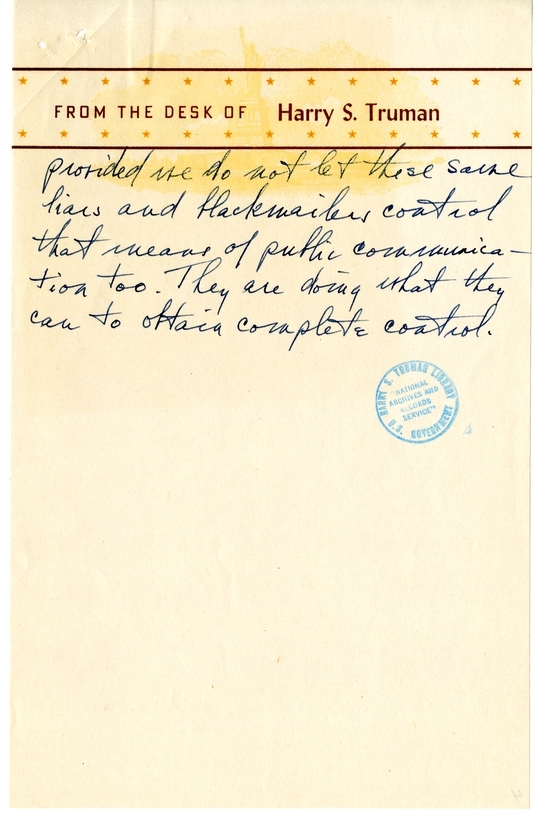 FROM THE DESK OF Harry S. Truman
provided we do not let these same
liars and blackmailers control
that means of public communica-
tion too. They are doing what they
can to obtain complete control.
HARRY S. TRUMAN LIBRARY
"NATIONAL
ARCHIVES AND
RECORDS
SERVICE"
U.S. GOVERNMENT